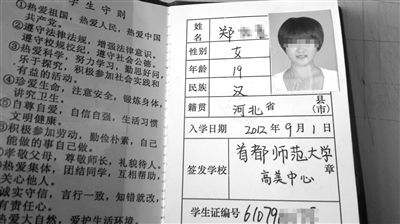 学生守则
①热爱祖国，热爱人民，热爱中国
共产党。
②遵守法律法规，增强法律意识。
遵守校规校纪，遵守社会公德。
③热爱科学，努力学习，勤思好问，
乐于探究，积极参加社会实践和
有益的活动。
④珍爱生命，注意安全，锻炼身体，
讲究卫生。
⑤自尊自爱，自信自强，生活习惯
文明健康。
⑥积极参加劳动，勤俭朴素，自己
能做的事自己做。
⑦孝敬父母，尊敬师长，礼貌待人。
热爱集体，团结同学，互相帮助，
关心他人。
诚实守信，言行一致，知错就改，
有责任心。
热爱大自然，爱护生活环境。
姓名 郑
性别 女
年龄 19
民族 汉
籍贯 河北省 县(市)
入学日期 2012年9月1日
签发学校 首都师范大学
高美中心 章
学生证编号 61079